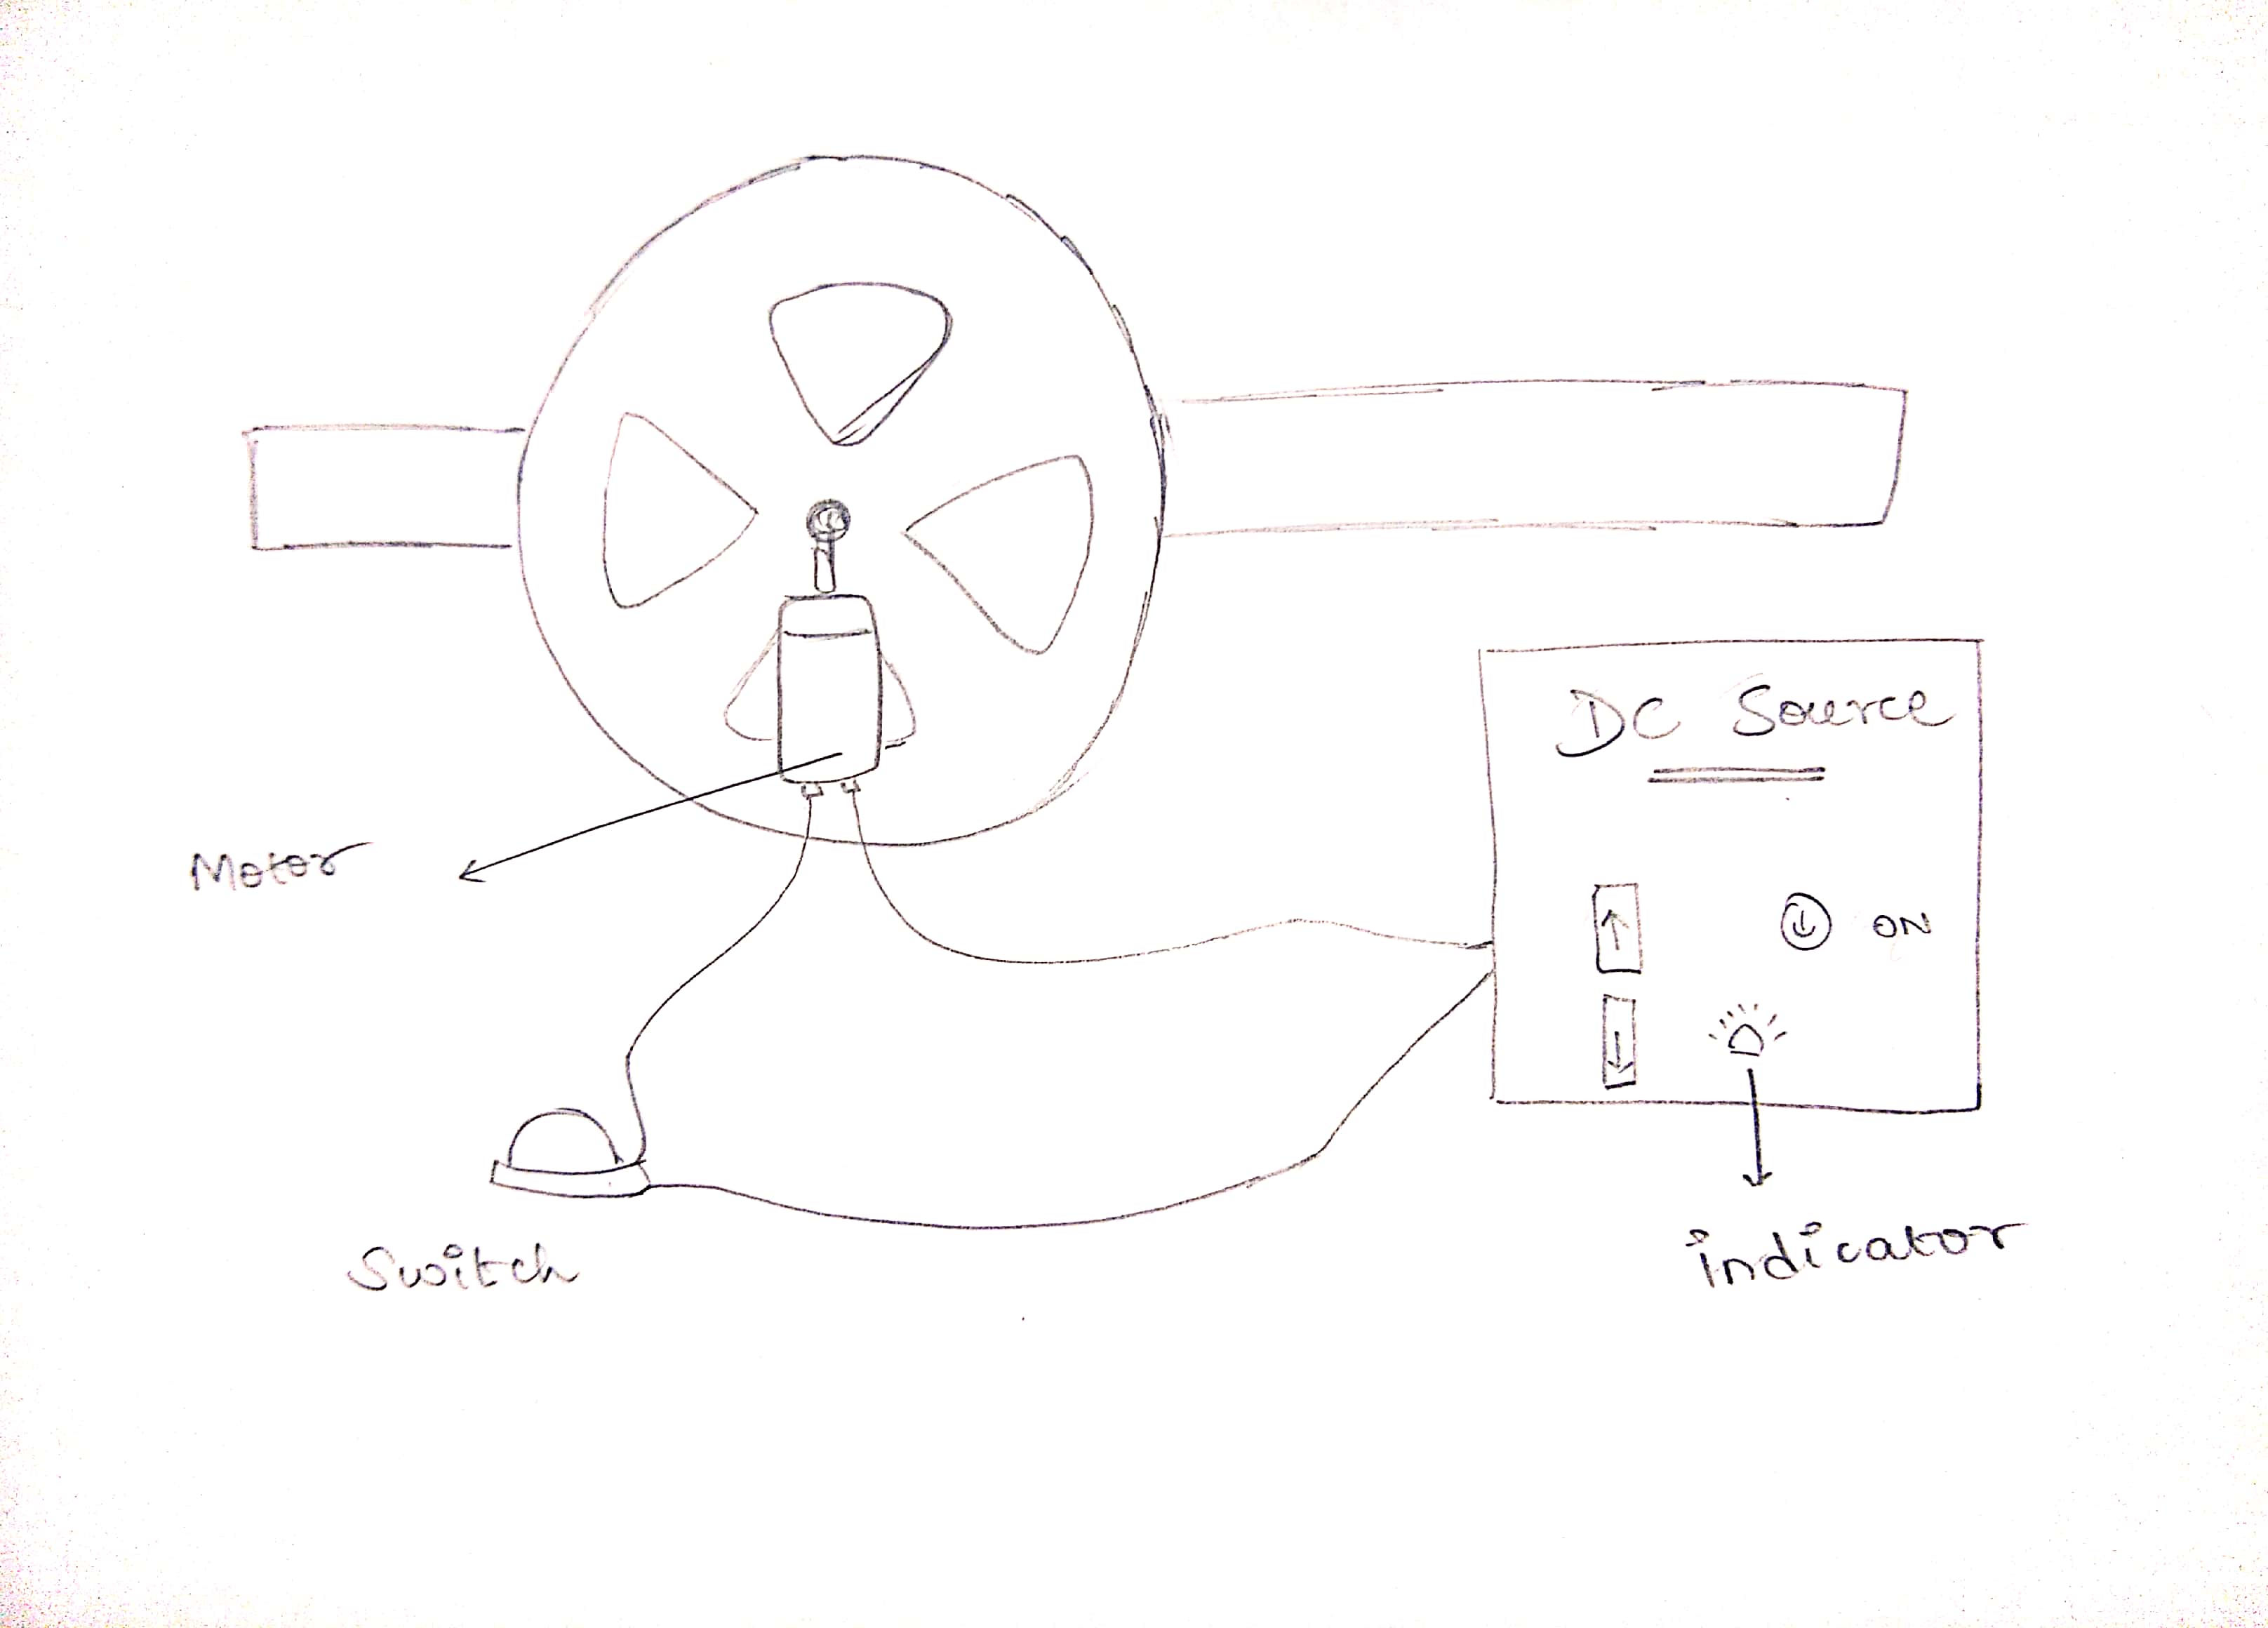 DC Source
Motor
ON
Switch
indicator